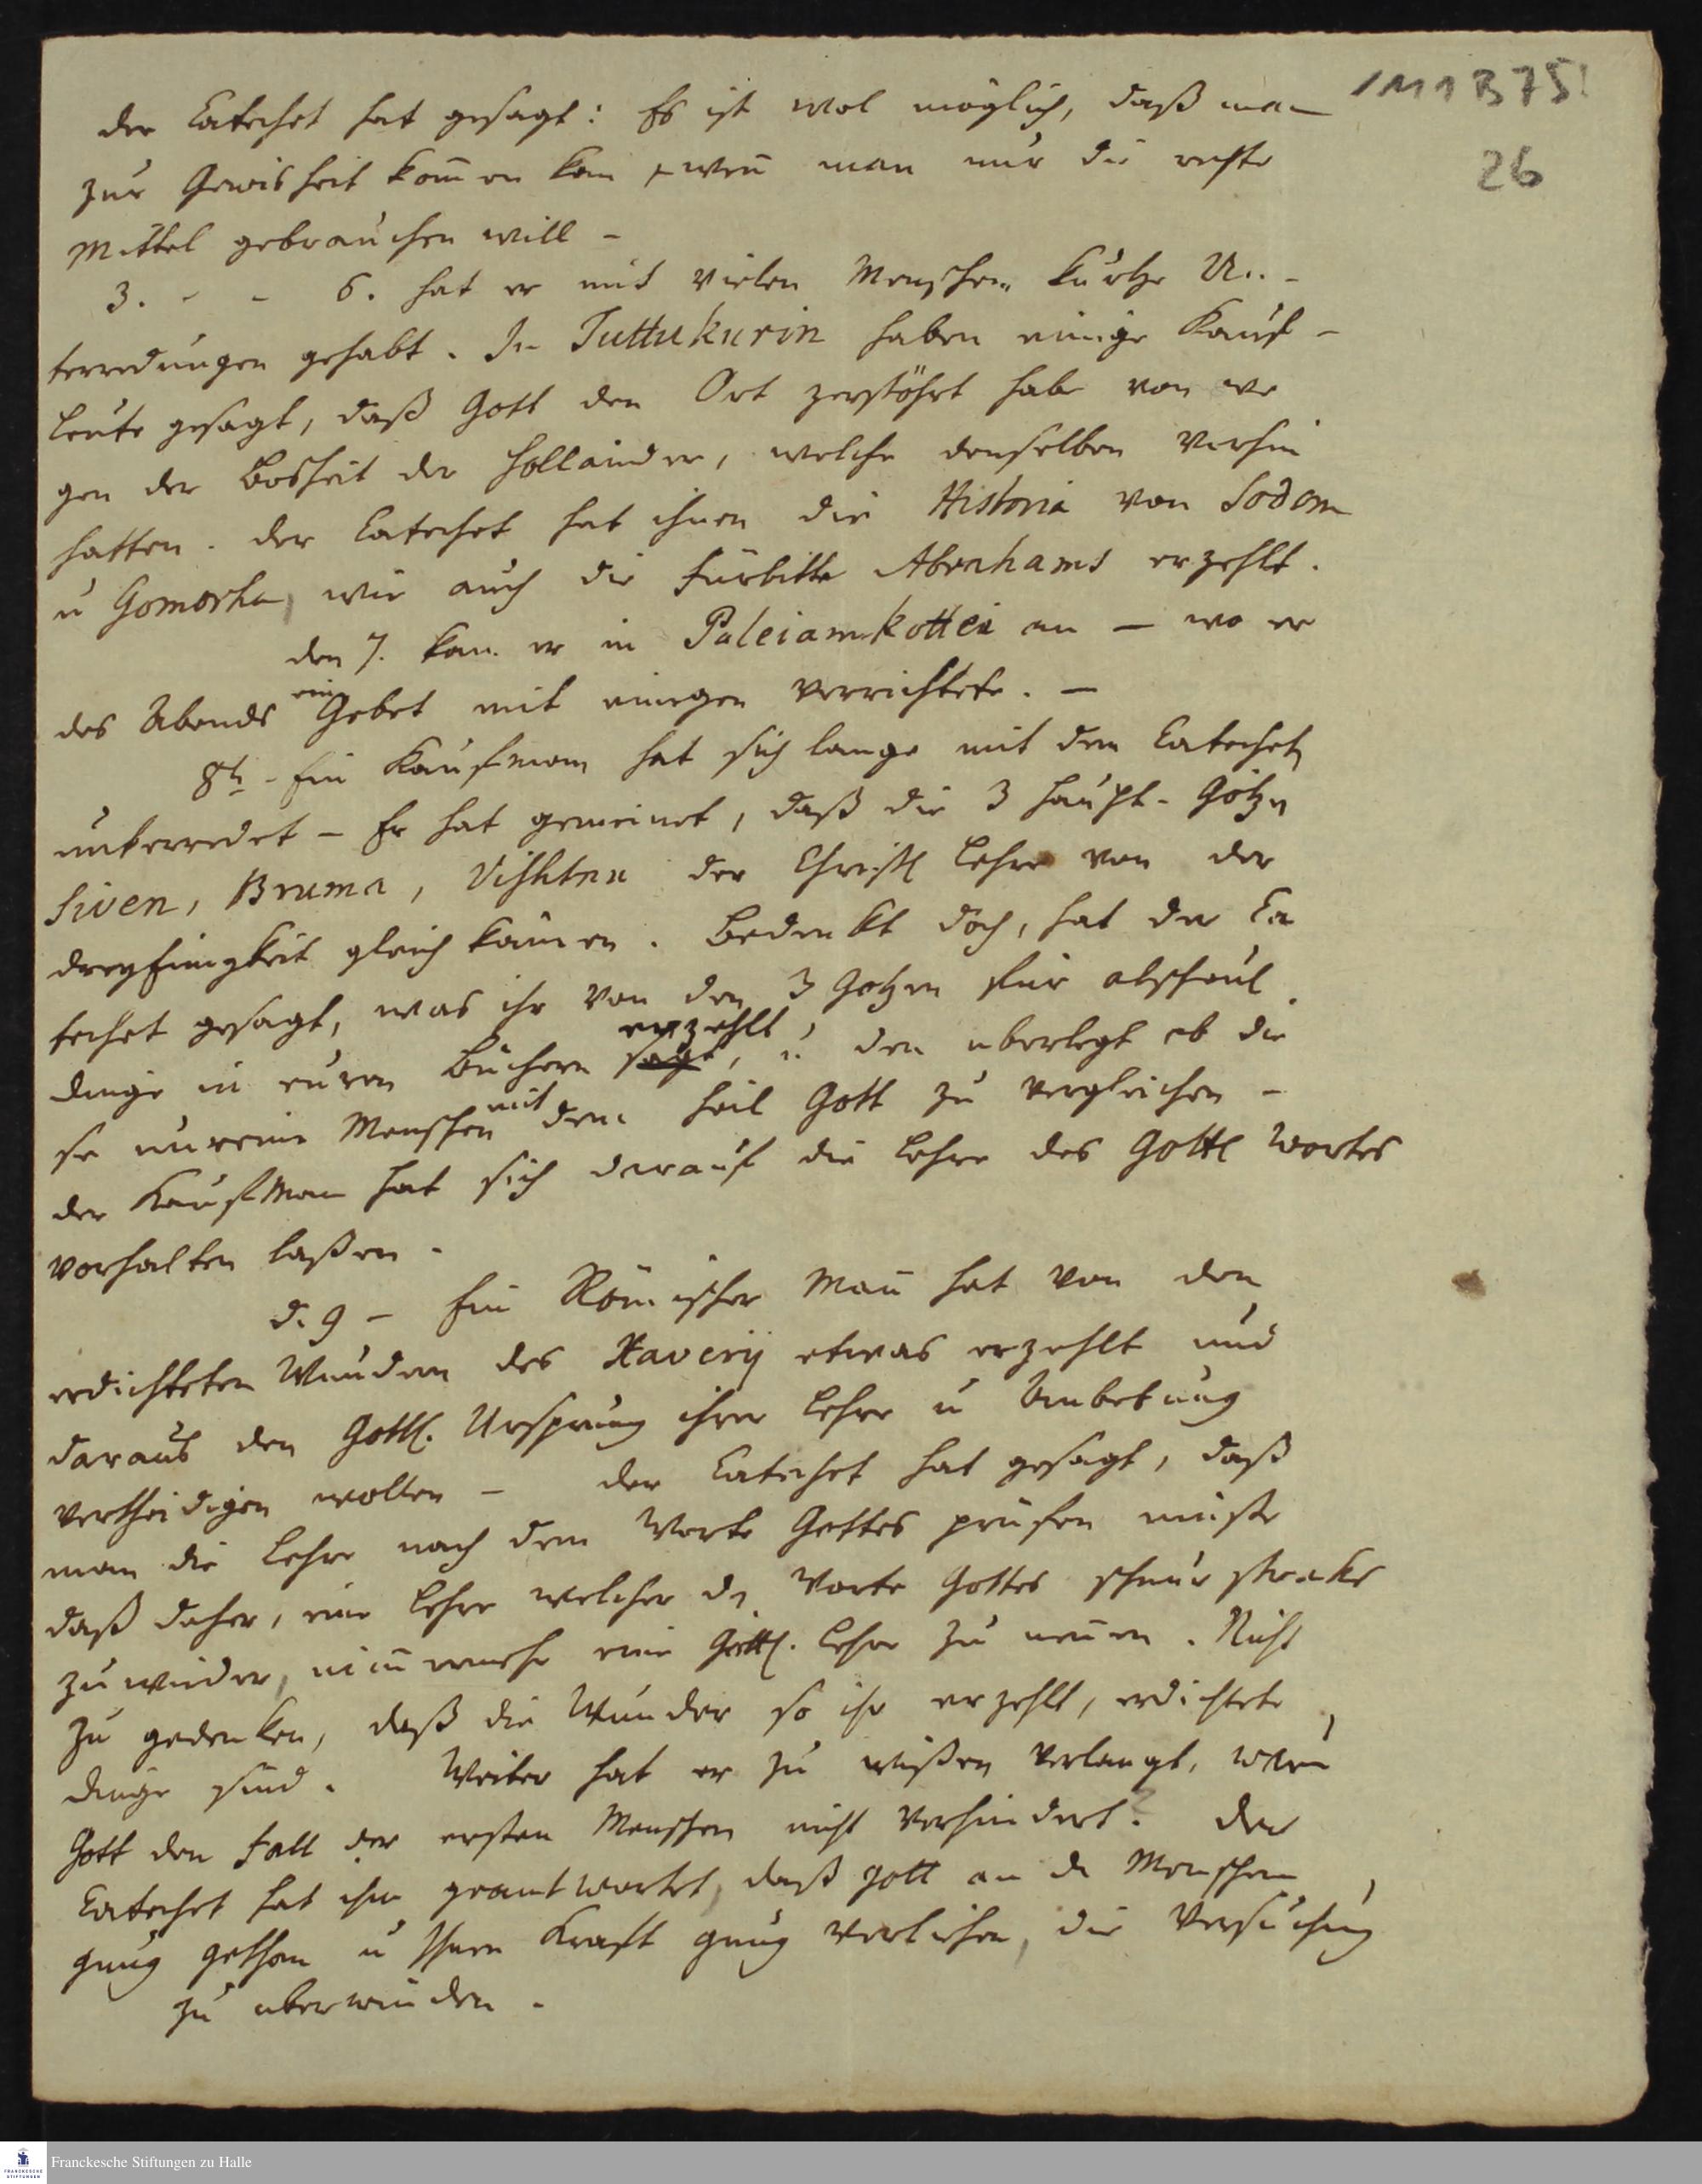 1M1 B 75!
26
der Catechet hat gesagt: Es ist wol möglich, daß man
zur Gewisheit kom̅en kan, wen̅ man nur die rechte
Mittel gebrauchen will –
3. - - 6. hat er mit vielen Menschen kurtze Un-
terredungen gehabt. In Tuttukurin haben einige Kauf-
leute gesagt, daß Gott den Ort zerstöhrt habe von we
gen der Bosheit der Holländer, welche denselben vorhin
hatten. der Catechet hat ihnen die Historia von Sodom
u Gomorha, wie auch die Fürbitte Abrahams erzehlt.
den 7. kam er in Paleiamkottei an – wo er
des Abends ein Gebet mit einigen verrichtete. –
8t. - Ein Kaufmann hat sich lange mit dem Catecheten
unterredet – Er hat gemeinet, daß die 3 Haupt-Götzen
Siven, Bruma, Vishtnu der Christl Lehre von der
dreyEinigkeit gleich kämen. Bedenkt doch, hat der Ca
techet gesagt, was ihr von den 3 Götzen für abscheul.
dinge in euren Büchern sagt erzehlt, u. den überlegt ob die
se unreine Menschen mit dem heil Gott zu vergleichen –
der Kaufman hat sich darauf die Lehre des Göttl Wortes
vorhalten laßen.
d. 9 – Ein Römischer Man̅ hat von den
erdichteten Wundern des Xaverij etwas erzehlt und
daraus den Göttl. Ursprung ihrer Lehre u Anbetung
vertheidigen wollen – der Catechet hat gesagt, daß
man die Lehre nach dem Worte Gottes prüfen müste
daß daher, eine Lehre welcher d. Worte Gottes schnur stracks
zuwieder, nim̅ermehr eine Göttl. Lehre zu nen̅en. Nicht
zu gedenken, daß die Wunder so ihr erzehlt, erdichtete
dinge sind. Weiter hat er zu wißen verlangt,
Gott den Fall der ersten Menschen nicht verhindert? der
Catechet hat ihm geantwortet, daß Gott an de Menschen
gnug gethan u Ihnen Kraft gnug verliehen, die Versuchung
zu überwinden.
Franckesche Stiftungen zu Halle